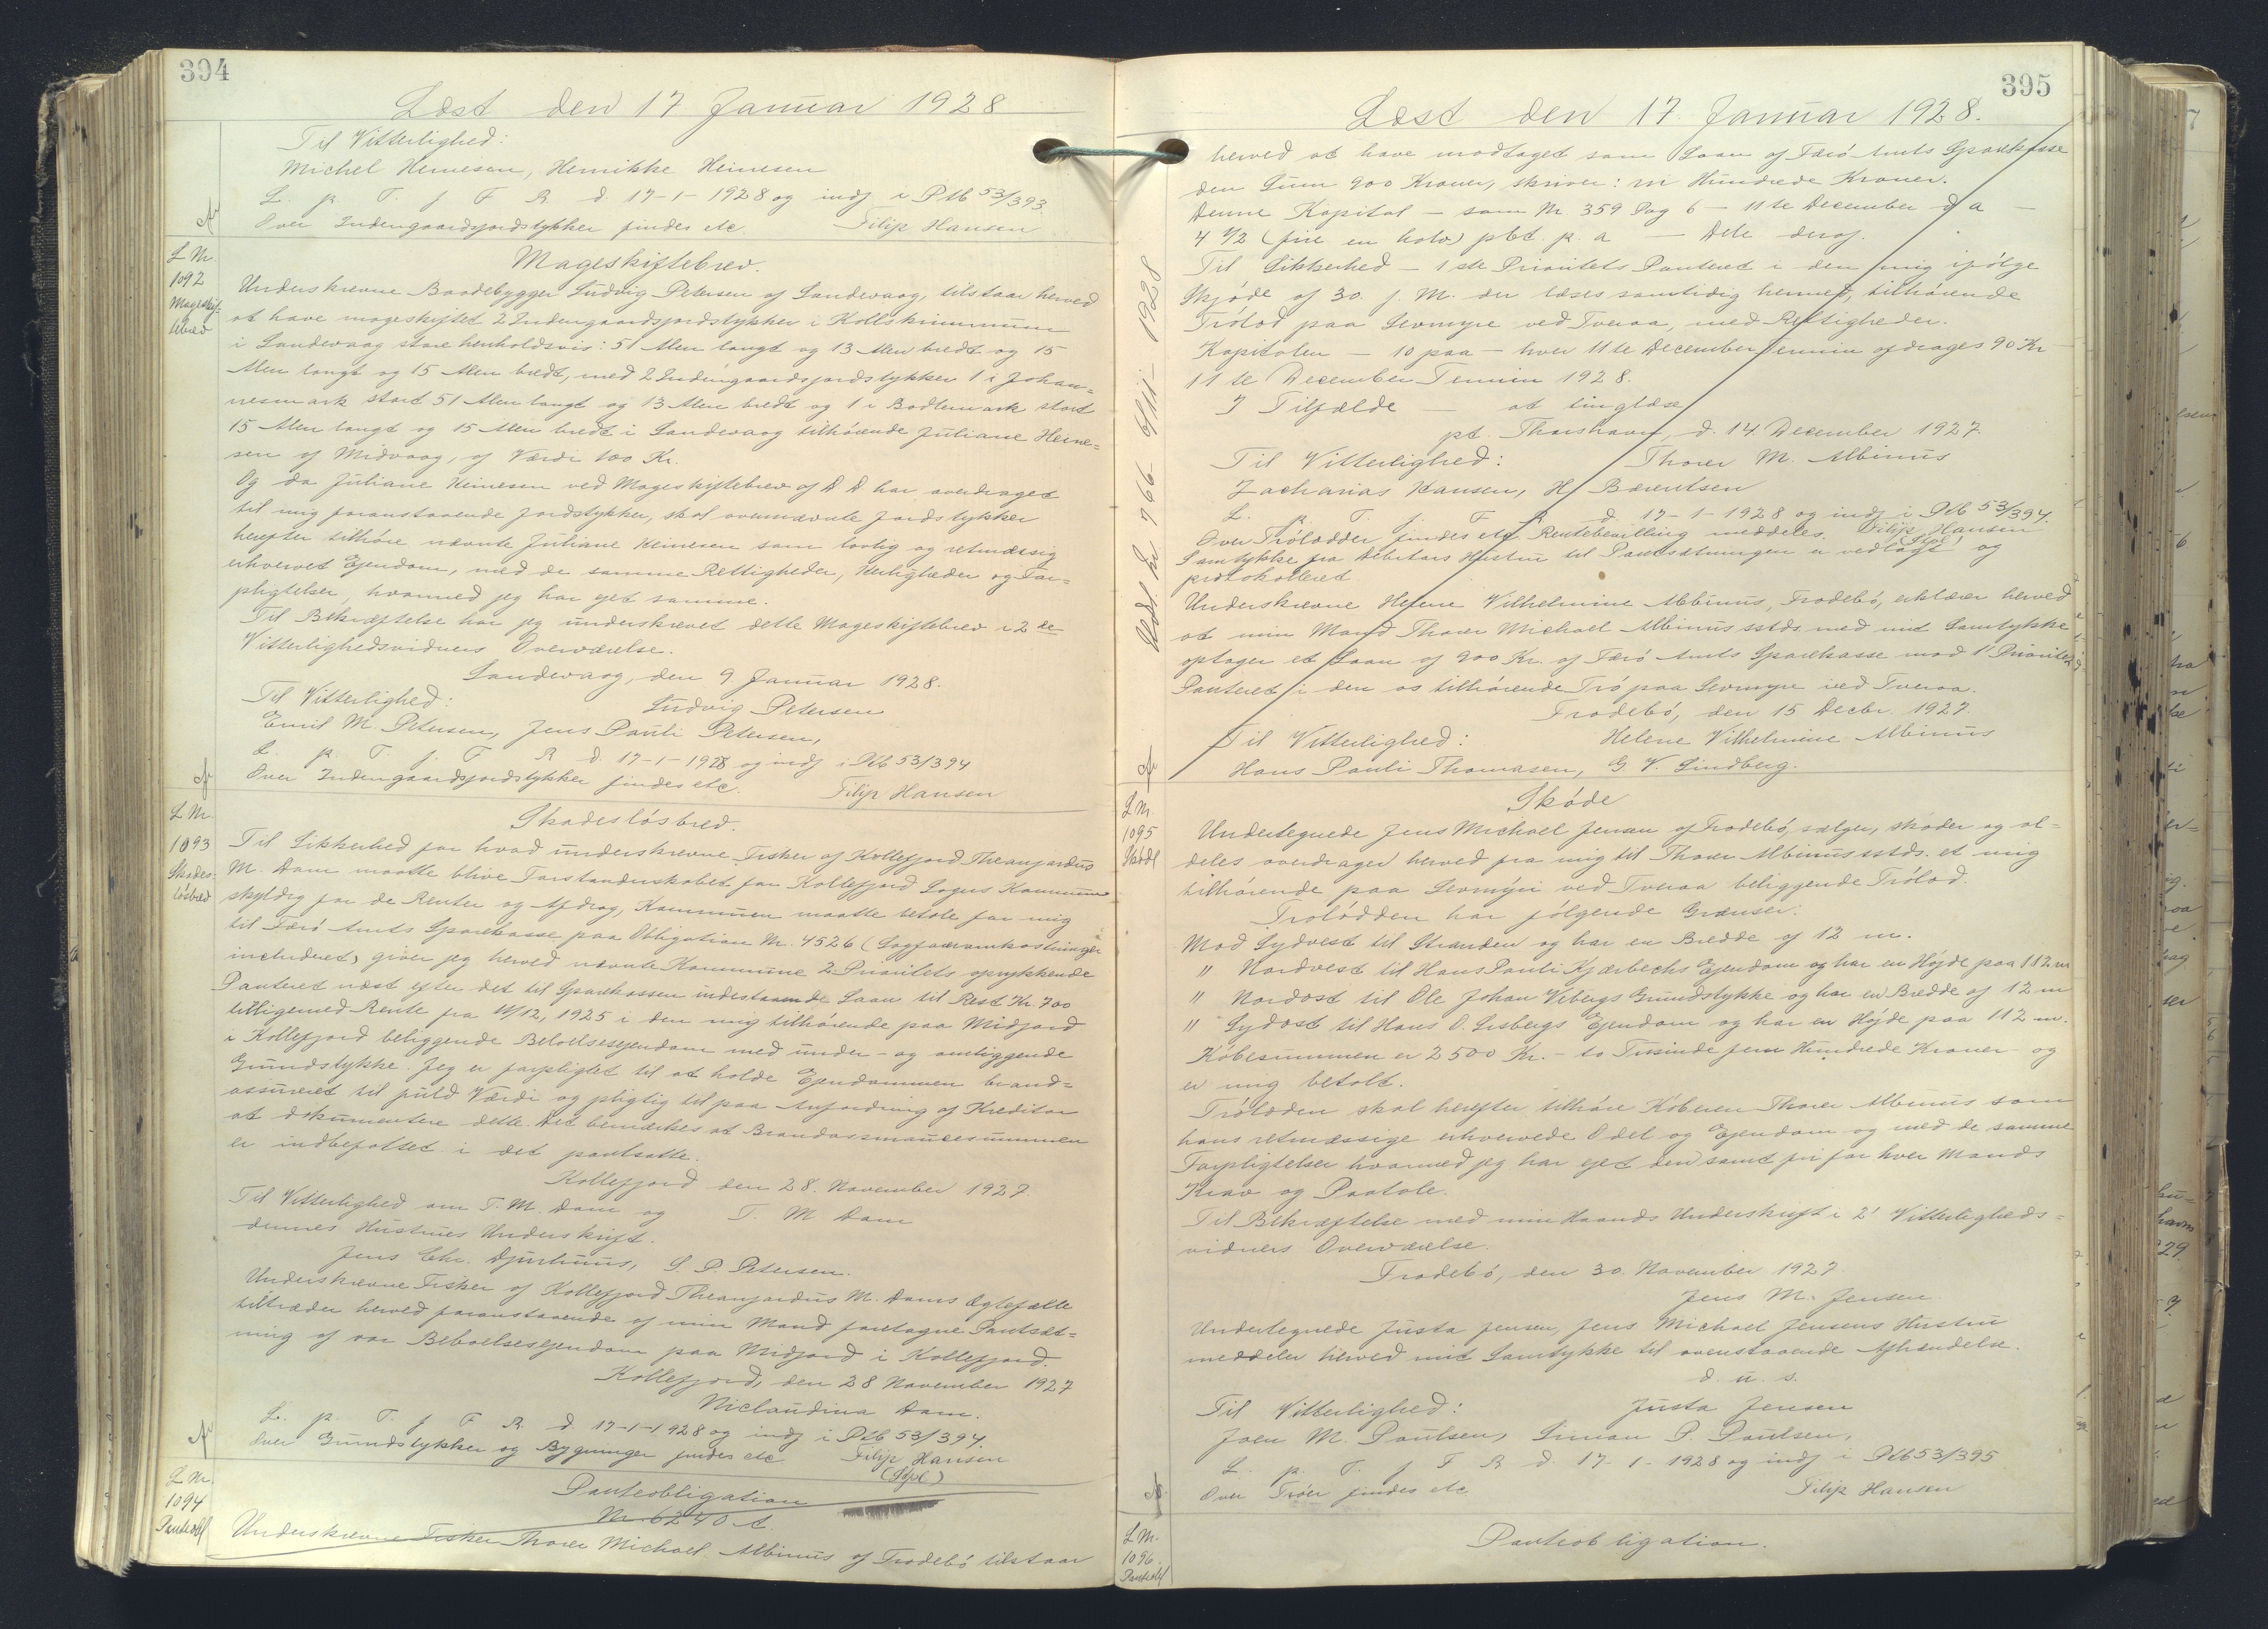 394
Læst den 17 Januar 1928
Til Vitterlighed:
Michel Heinesen, Henrikke Heinesen
L. p. T. f F R d 17-1-1928 og indf i Ptb 53/393.
Over Indengaardsjordstykker findes etc. Filip Hansen
L Nr.
1092
Mageskif-
tebrev
Mageskiftebrev.
Underskrevne Baadebygger Ludvig Petersen af Sandevaag, tilstaar herved
at have mageskiftet 2 Indengaardsjordstykker i Kollskrimmum
i Sandevaag store henholdsvis: 51 Alen langt og 13 Alen bredt og 15
Alen langt og 15 Alen bredt, med 2 Indengaardsjordstykker 1 i Johan-
nesmark stort 51 Alen langt og 13 Alen bredt og 1 i Bodlemark stort
15 Alen langt og 15 Alen bredt i Sandevaag tilhörende Juliane Heine-
sen af Midvaag, af Værdi 100 Kr.
Og da Juliane Heinesen ved Mageskiftebrev af D. D. har overdraget
til mig foranstaaende Jordstykker, skal ovennævnte Jordstykker
herefter tilhöre nævnte Juliane Heinesen som lovlig og retmæssig
erhvervet Ejendom, med de samme Rettigheder, Herligheder og For-
pligtelser, hvormed jeg har ejet samme.
Til Bekræftelse har jeg underskrevet dette Mageskiftebrev i 2de
Vitterlighedsvidners Overværelse.
Sandevaag, den 9. Januar 1928.
Til Vitterlighed: Ludvig Petersen
Emil M. Petersen, Jens Pauli Petersen,
L. p. T. f. F R d. 17-1-1928 og indf i Ptb 53/394
Over Indengaardsjordstykker findes etc. Filip Hansen
L Nr.
1093
Skades-
lösbrev
Skadeslösbrev.
Til Sikkerhed for hvad underskrevne Fisker af Kollefjord Theanjardus
M. Dam maatte blive Forstanderskabet for Kollefjord Sogns Kommune
skyldig for de Renter og Afdrag, Kommunen maatte betale for mig
til Færö Amts Sparekasse paa Obligation Nr. 4526 (Sagföreromkostninger
includeret) giver jeg herved nævnte Kommune 2 Prioritets oprykkende
Panteret næst efter det til Sparekassen indestaaende Laan til Rest Kr. 700
tilligemed Rente fra 11/12, 1925 i den mig tilhörende paa Midjord
i Kollefjord beliggende Beboelsesejendom med under- og omliggende
Grundstykke. Jeg er forpligtet til at holde Ejendommen brand-
assureret til fuld Værdi og pligtig til paa Anfordring af Kreditor
at dokumentere dette. Det bemærkes at Brandassurancesummen
er indbefattet i det pantsatte.
Kollefjord den 28. November 1927.
Til Vitterlighed om T. M. Dam og T. M Dam
dennes Hustrues Underskrift.
Jens Chr. Djurhuus, S. P. Petersen.
Underskrevne Fisker af Kollefjord Theanjardus M. Dams Ægtefælle
tiltræder herved foranstaaende af min Mand foretagne Pantsæt-
ning af vor Beboelsesejendom paa Midjord i Kollefjord.
Kollefjord, den 28 November 1927
Niclaudina Dam.
L. p. T. f F R. d 17-1-1928 og indf i Ptb 53/394.
Over Grundstykker og Bygninger findes etc Filip Hansen
L Nr.
1094
Panteobl
Panteobligation
Nr. 6240 A.
Underskrevne Fisker Thorer Michael Albinus af Trodebö tilstaar
395
Læst den 17. Januar 1928.
herved at have modtaget som Laan af Færö Amts Sparekasse
den Sum 900 Kroner, skriver: ni Hundrede Kroner.
Denne Kapital - som Nr 359 Pag 6 - 11te December d a -
4 1/2 (fire en halv) pct. p. a - Dele deraf.
Til Sikkerhed - 1ste Prioritets Panteret i den mig ifölge
Skjöde af 30. f. M. der læses samtidig hermed, tilhörende
Trölod paa Sevmyre ved Tveraa, med Rettigheder.
Kapitalen - 10 paa - hver 11te December Termin afdrages 90 Kr
11te December Termin 1928.
I Tilfælde - at tinglæse
pt. Thorshavn, d. 14 December 1927.
Til Vitterlighed: Thorer M. Albinus
Zacharias Hansen, H. Bærentsen
L. p. T. f. F R d 17-1-1928 og indf i Ptb 53/394.
Over Trölodder findes etc. Rentebevilling meddeles. Filip Hansen
Samtykke fra Debitors Hustru til Pantsætningen er vedlagt og
protokolleret
Underskrevne Helene Vilhelmine Albinus, Trodebö, erklærer herved
at min Mand Thorer Michael Albinus sstds. med mit Samtykke
optager et Laan af 900 Kr. af Færö Amts Sparekasse mod 1' Prioritets
Panteret i den os tilhörende Trö paa Sevmyre ved Tveraa.
Trodebö, den 15 Decbr. 1927.
Til Vitterlighed: Helene Vilhelmine Albinus
Hans Pauli Thomasen, G V. Lindberg.
Udsl. Lr 766 6/11- 1928
L Nr
1095
Skøde
Skóde
Undertegnede Jens Michael Jensen af Trodebó, sælger, skøder og al-
deles overdrager herved fra mig til Thorer Albinus sstds. et mig
tilhörende paa Sevmýri ved Tveraa beliggende Trölod.
Trolödden har fólgende Grænser:
Mod Sydvest til Stranden og har en Bredde af 12 m.
" Nordvest til Hans Pauli Kjærbechs Ejendom og har en Højde paa 112 m
" Nordost til Ole Johan Vebergs Grundstykke og har en Bredde af 12 m
" Sydost til Hans O. Lisbergs Ejendom og har en Højde paa 112 m.
Köbesummen er 2500 Kr. - to Tusinde fem Hundrede Kroner og
er mig betalt.
Trölodden skal herefter tilhöre Köberen Thorer Albinus som
hans retmæssige erhvervede Odel og Ejendom og med de samme
Forpligtelser hvormed jeg har ejet den samt fri for hver Mands
Krav og Paatale.
Til Bekræftelse med min Haands Underskrift i 2' Vitterligheds-
vidners Overværelse.
Trodebö, den 30. November 1927.
Jens M. Jensen.
Undertegnede Justa Jensen, Jens Michael Jensens Hustru
meddeler herved mit Samtykke til ovenstaaende Afhændelse.
d. u. s.
Til Vitterlighed: Justa Jensen
Joen M. Poulsen, Simon P. Poulsen,
L. p. T. f F R d. 17-1-1928 og indf i Ptb 53/395
Over Tröer findes etc Filip Hansen
L Nr.
1096.
Panteobl
Panteobligation.